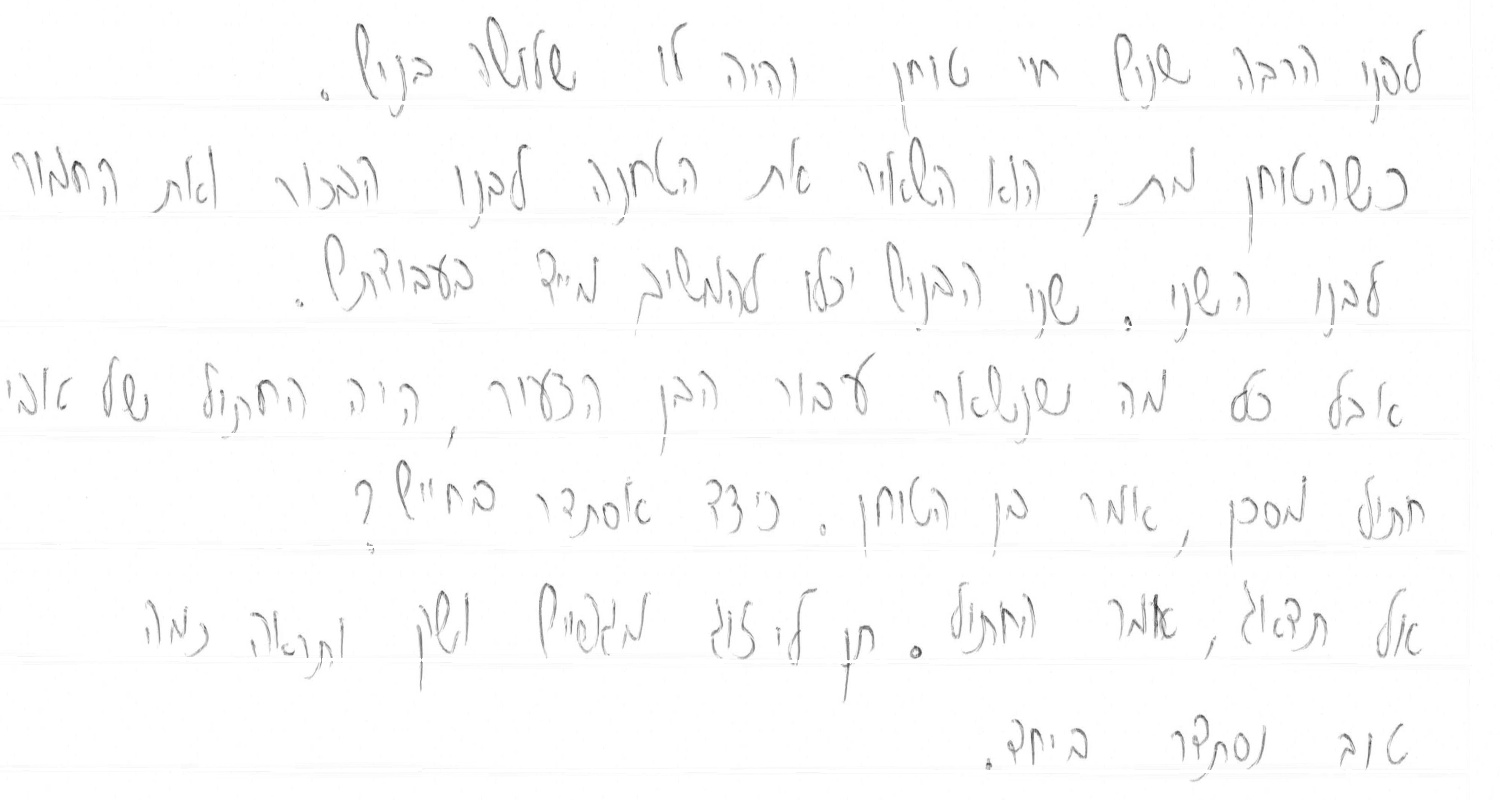 לפני הרבה שנים חי טוחן והיה לו שלושה בנים.
כשהטוחן מת, הוא השאיר את הטחנה לבנו הבכור ואת החמור
לבנו השני. שני הבנים יכלו להמשיך מייד בעבודתם.
אבל כל מה שנשאר עבור הבן הצעיר, היה החתול של אבי
חתול מסכן, אמר בן הטוחן. כיצד אסתדר בחיים?
אל תדאג, אמר החתול. תן לי זוג מגפיים ושק ותראה כמה
טוב נסתדר ביחד.